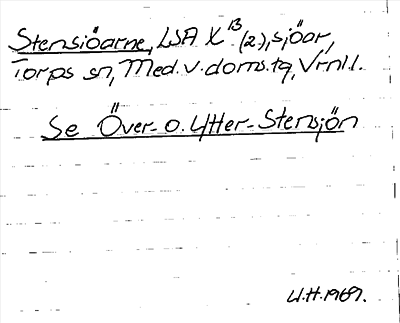 Stensjöarne, LSA X 13 (2), sjöar,
Torps sn, Med. v. doms. tg, Vrnl.
Se Över- o. Ytter-Stensjön
U.H. 1969.